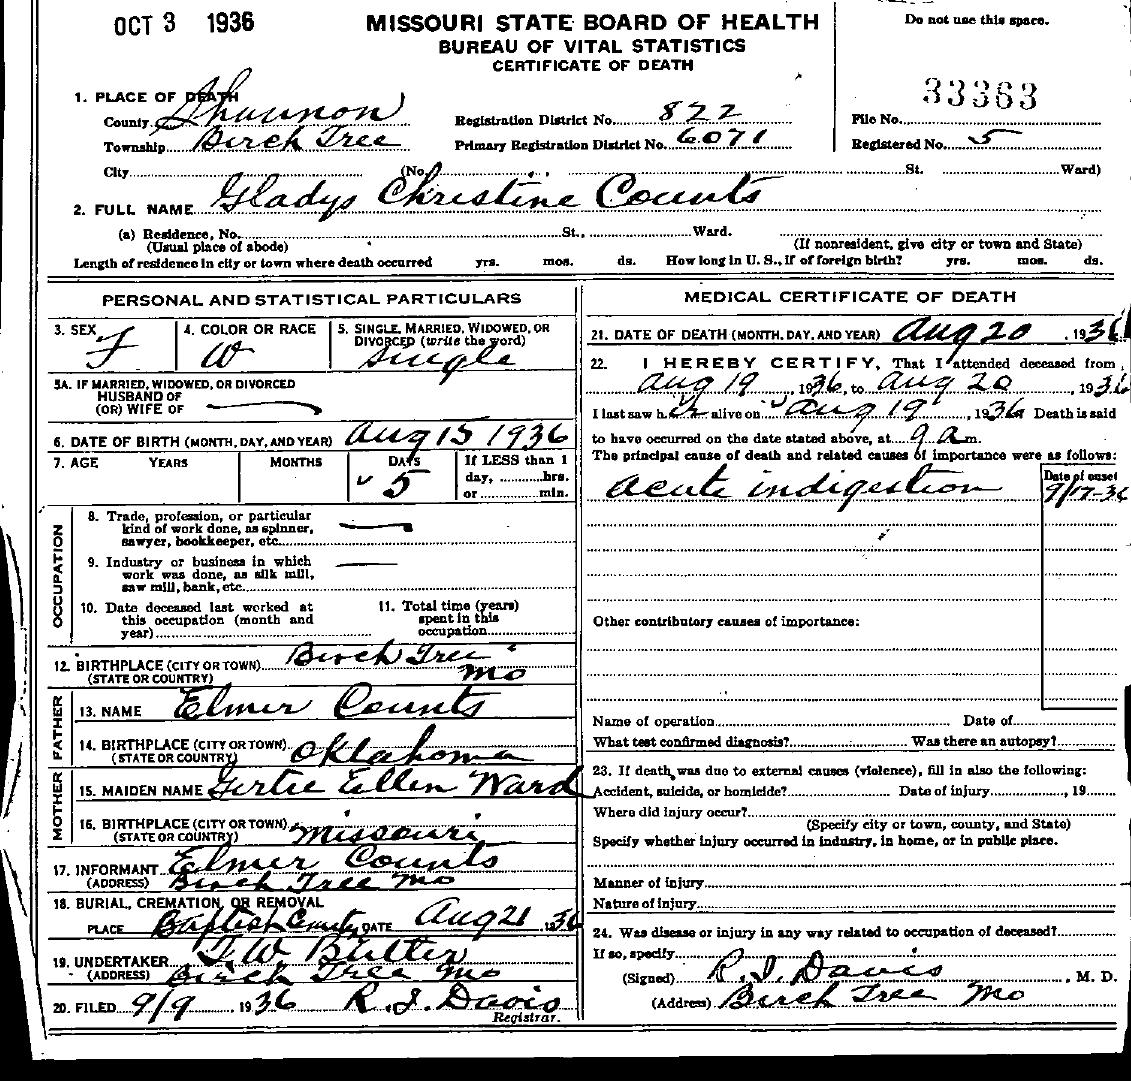 OCT 3 1936
MISSOURI STATE BOARD OF HEALTH
BUREAU OF VITAL STATISTICS
CERTIFICATE OF DEATH
Do not use this space.
33363
1. PLACE OF DEATH
County Shannon Registration District No. 822 File No.
Township Birch Tree Primary Registration District No. 6071 Registered No. 5
City (No. St. Ward)
2. FULL NAME Gladys Christine Counts
(a) Residence, No. St., Ward.
(Usual place of abode) (If nonresident, give city or town and State)
Length of residence in city or town where death occurred yrs. mos. ds. How long in U. S., if of foreign birth? yrs. mos. ds.
PERSONAL AND STATISTICAL PARTICULARS
3. SEX F
4. COLOR OR RACE W
5. SINGLE, MARRIED, WIDOWED, OR DIVORCED (write the word) Single
5A. IF MARRIED, WIDOWED, OR DIVORCED
HUSBAND OF
(OR) WIFE OF
6. DATE OF BIRTH (MONTH, DAY, AND YEAR) Aug 15 1936
7. AGE YEARS MONTHS DAYS 5 If LESS than 1 day, hrs. or min.
OCCUPATION
8. Trade, profession, or particular
kind of work done, as spinner,
sawyer, bookkeeper, etc.
9. Industry or business in which
work was done, as silk mill,
saw mill, bank, etc.
10. Date deceased last worked at
this occupation (month and
year)
11. Total time (years)
spent in this
occupation
12. BIRTHPLACE (CITY OR TOWN) Birch Tree
(STATE OR COUNTRY) Mo
FATHER
13. NAME Elmer Counts
14. BIRTHPLACE (CITY OR TOWN) Oklahoma
(STATE OR COUNTRY)
MOTHER
15. MAIDEN NAME Gertie Ellen Ward
16. BIRTHPLACE (CITY OR TOWN) Missouri
(STATE OR COUNTRY)
17. INFORMANT Elmer Counts
(ADDRESS) Birch Tree Mo
18. BURIAL, CREMATION, OR REMOVAL
PLACE Baptist DATE Aug 21 1936
19. UNDERTAKER W Butler
(ADDRESS) Birch Tree Mo
20. FILED 9/9 1936 R. I. Davis
Registrar.
MEDICAL CERTIFICATE OF DEATH
21. DATE OF DEATH (MONTH, DAY, AND YEAR) Aug 20, 1936
22. I HEREBY CERTIFY, That I attended deceased from
Aug 19, 1936, to Aug 20, 1936
I last saw her alive on Aug 19, 1936 Death is said
to have occurred on the date stated above, at 9 a m.
The principal cause of death and related causes of importance were as follows:
Date of onset
Acute indigestion 9/17-36
Other contributory causes of importance:
Name of operation Date of
What test confirmed diagnosis? Was there an autopsy?
23. If death was due to external causes (violence), fill in also the following:
Accident, suicide, or homicide? Date of injury , 19
Where did injury occur?
(Specify city or town, county, and State)
Specify whether injury occurred in industry, in home, or in public place.
Manner of injury
Nature of injury
24. Was disease or injury in any way related to occupation of deceased?
If so, specify
(Signed) R. I. Davis, M. D.
(Address) Birch Tree Mo